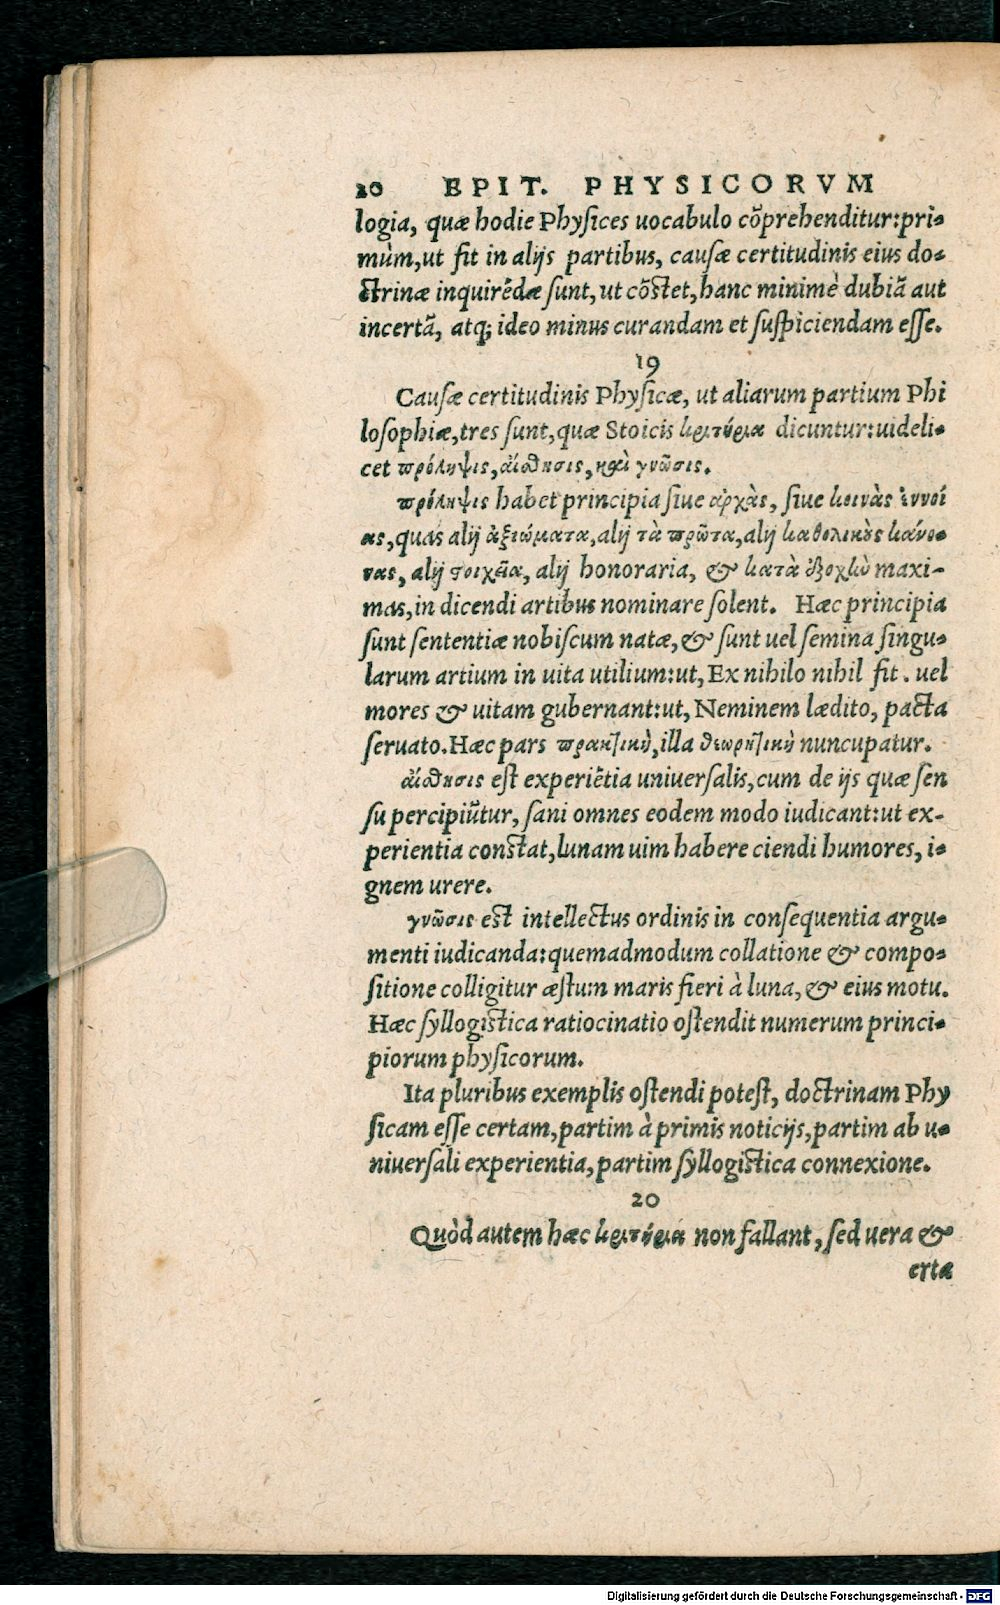 20 EPIT. PHYSICORVM
logia, quæ hodie Physices uocabulo cõprehenditur:pri-
mùm,ut fit in alijs partibus, causæ certitudinis eius do-
ctrinæ inquirẽdæ sunt, ut cõstet, hanc minimè dubiã aut
incertã, atq; ideo minus curandam et suspiciendam esse.
19
Causæ certitudinis Physicæ, ut aliarum partium Phi
losophiæ,tres sunt,quæ Stoicis κριτήρια dicuntur:uideli-
cet πρόληψις, αἴσθησις, καὶ γνῶσις.
πρόληψις habet principia siue ἀρχὰς, siue κοινὰς ἐννοί
ας,quas alij ἀξιώματα,alij τὰ πρῶτα,alij καθολικοὺς κάνο-
νας, alij στοιχεῖα, alij honoraria, & κατὰ ἐξοχὴν maxi-
mas,in dicendi artibus nominare solent. Hæc principia
sunt sententiæ nobiscum natæ,& sunt uel semina singu-
larum artium in uita utilium:ut, Ex nihilo nihil fit. uel
mores & uitam gubernant:ut, Neminem lædito, pacta
seruato.Hæc pars πρακτικὴ,illa θεωρητικὴ nuncupatur.
αἴσθησις est experiẽtia uniuersalis,cum de ijs quæ sen
su percipiũtur, sani omnes eodem modo iudicant:ut ex-
perientia constat,lunam uim habere ciendi humores, i-
gnem urere.
γνῶσις est intellectus ordinis in consequentia argu-
menti iudicanda:quemadmodum collatione & compo-
sitione colligitur æstum maris fieri à luna, & eius motu.
Hæc syllogistica ratiocinatio ostendit numerum princi-
piorum physicorum.
Ita pluribus exemplis ostendi potest, doctrinam Phy
sicam esse certam,partim à primis noticijs,partim ab u-
niuersali experientia,partim syllogistica connexione.
20
Quòd autem hæc κριτήρια non fallant, sed uera &
ertæ
Digitalisierung gefördert durch die Deutsche Forschungsgemeinschaft - DFG